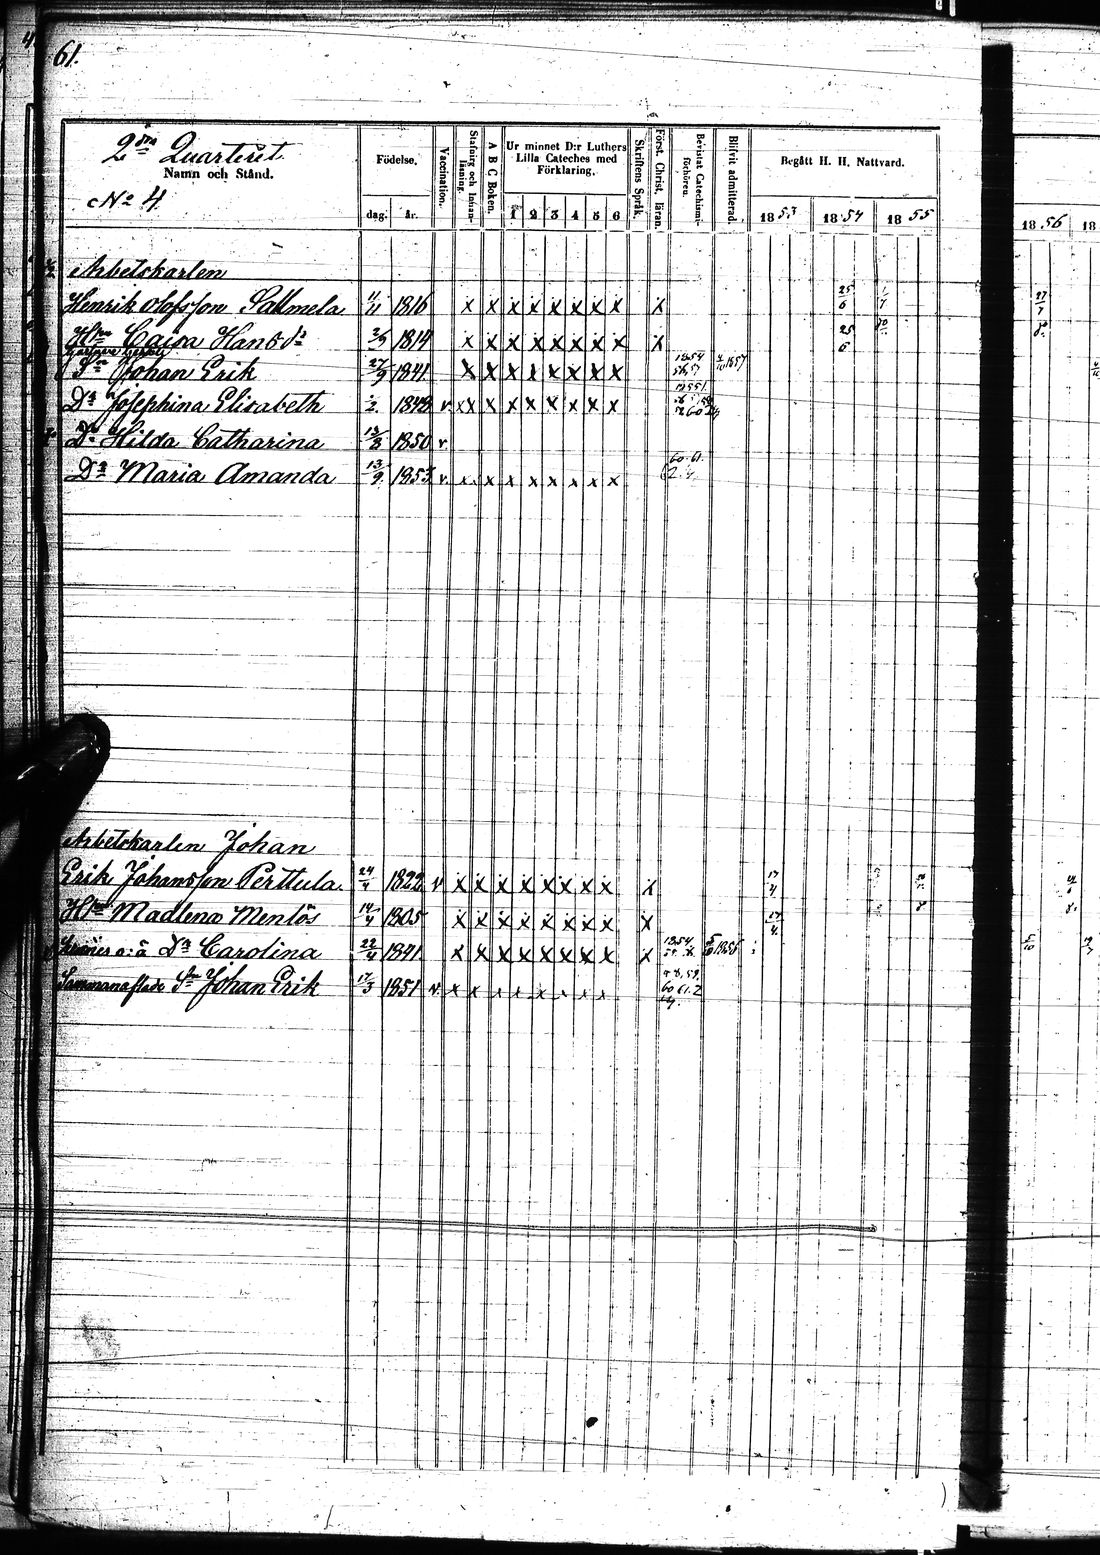 61.
2dra Quarteret
Namn och Stånd.
No 4
Födelse.
dag. år.
Vaccination.
Stafning och Innan-läsning.
A B C Boken.
Ur minnet D:r Luthers
Lilla Cateches med
Förklaring.
1 2 3 4 5 6
Skriftens Språk.
Först. Christ. läran.
Bevistat Catechismi-förhören.
Blifvit admitterad.
Begått H. H. Nattvard.
1853 1854 1855
1856 18
Arbetskarlen
Henrik Olofsson Salmela 11/11 1816 x x x x x x x x x 25/6 1/7 27/7
Hru Caisa Hansdr 1814 x x x x x x x x x 25/6 do do
Sn Johan Erik 27/9 1841 x x x x x x x x 1854 1857
Dr Josephina Elisabeth 1848 v xx x x x x x x x
Dr Hilda Catharina 13/8 1850 v
Dr Maria Amanda 13/9 1853 v x x x x x x x x 60. 61.
Arbetskarlen Johan
Erik Johansson Perttula. 24/4 1822 v x x x x x x x x x 17/4
Hru Madlena Menlös 14/4 1805 x x x x x x x x x 17/4
Dr Carolina 22/4 1841 x x x x x x x x x 1854 1856 5/10
Sammanaflade Sn Johan Erik 17/3 1851 v x x x x x x x x 58, 59, 60 61. 2